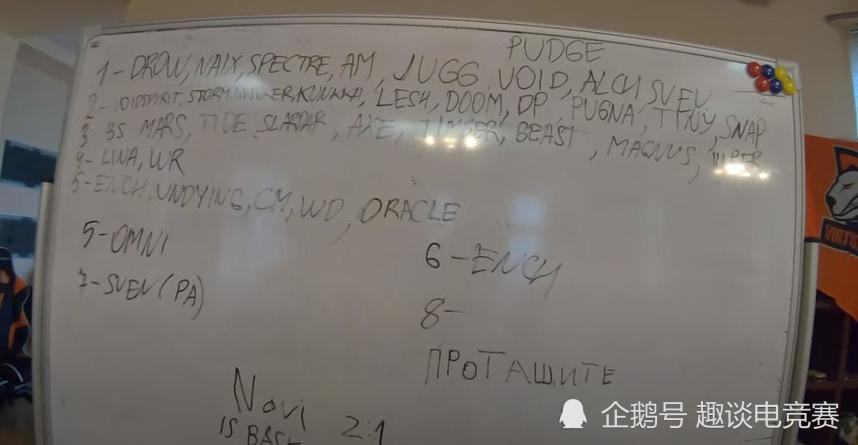 PUDGE
1-DROW, NAIX, SPECTRE, AM, JUGG, VOID, ALCH SVEN
2-VOIDSPIRIT, STORM, INVOKER, KUNKKA, LESH, DOOM, DP, PUGNA, TINY, SNAP
3-BS MARS, TIDE SLARDAR, AXE, TIMBER, BEAST, MAGNUS, VIPER
4-LINA, WR
5-ENCH, UNDYING, CM, WD, ORACLE
5-OMNI
6-ENCH
7-SVEN (PA)
8-
ПРОТАЩИТЕ
Navi
IS BACK 2:1
VIRTU
企鹅号 趣谈电竞赛